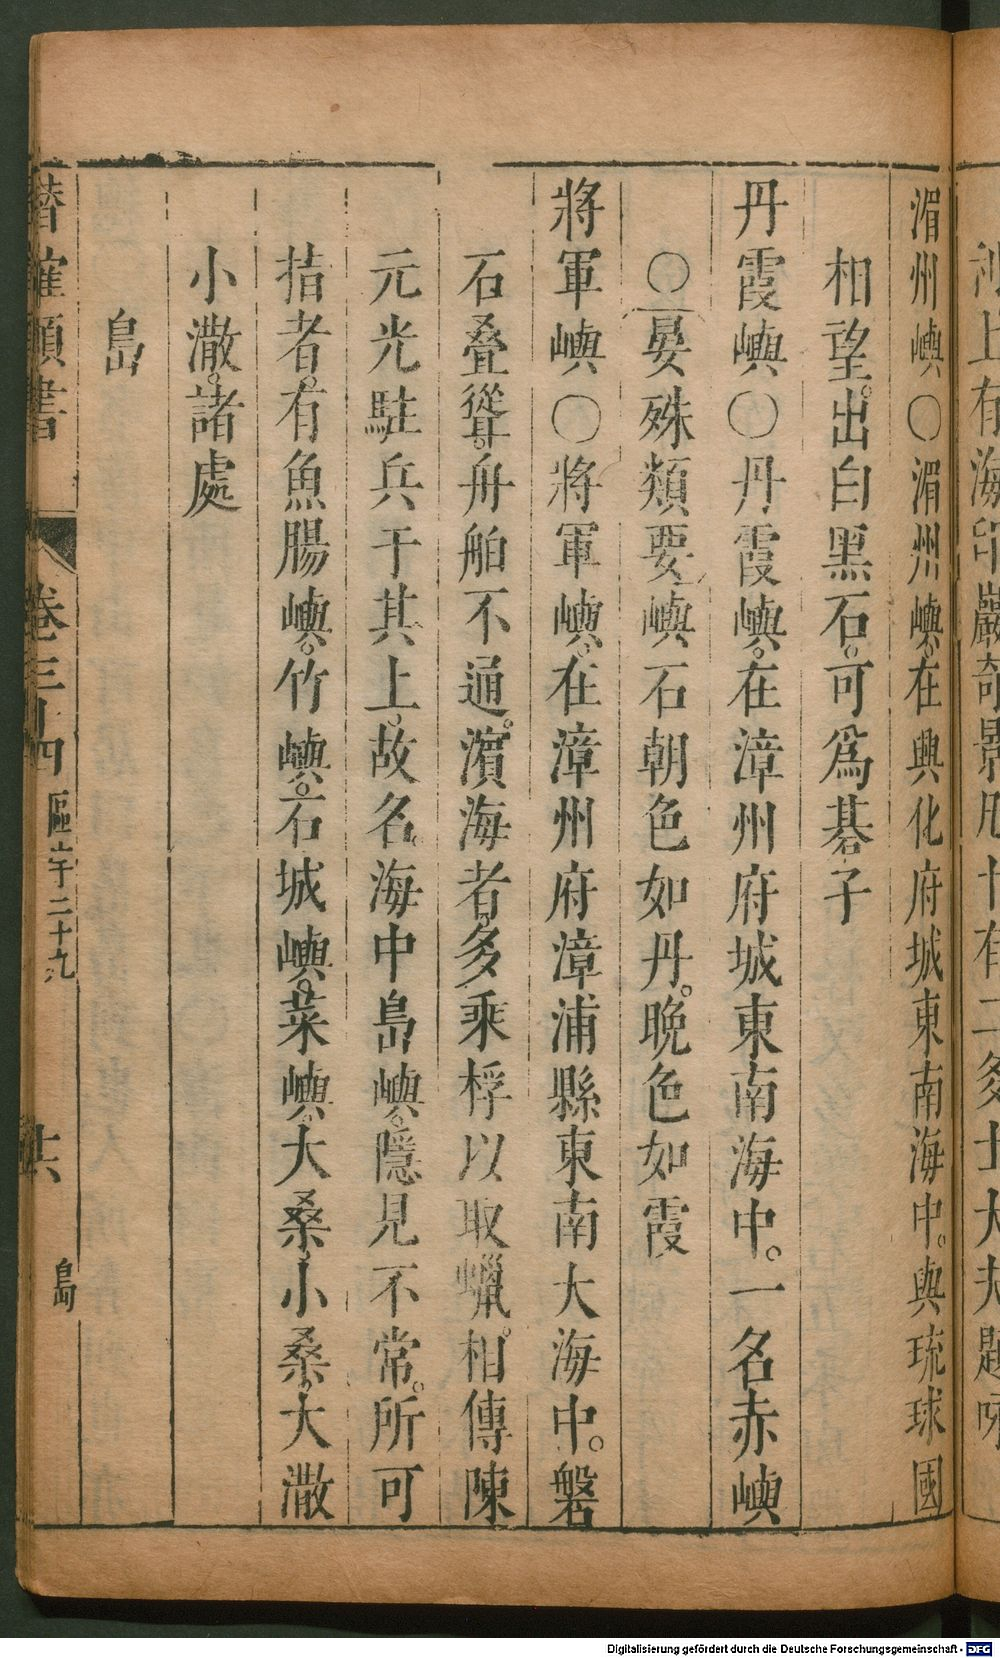 上有海印巖奇景凡十有二多士大夫題咏
湄州嶼〇湄州嶼。在興化府城東南海中。與琉球國
相望。出白黑石。可爲碁子
丹霞嶼〇丹霞嶼。在漳州府城東南海中。一名赤嶼
〇晏殊類要嶼石朝色如丹。晩色如霞
將軍嶼〇將軍嶼。在漳州府漳浦縣東南大海中。磐
石叠聳。舟舶不通。濵海者多乘桴以取蠟。相傳陳
元光駐兵于其上。故名。海中島嶼。隱見不常。所可
㨗者。有魚腸嶼。竹嶼。石城嶼。菜嶼。大桑。小桑。大潵
小潵。諸處
島
潛確類書 卷三十四 區宇二十九 共 島
Digitalisierung gefördert durch die Deutsche Forschungsgemeinschaft - DFG